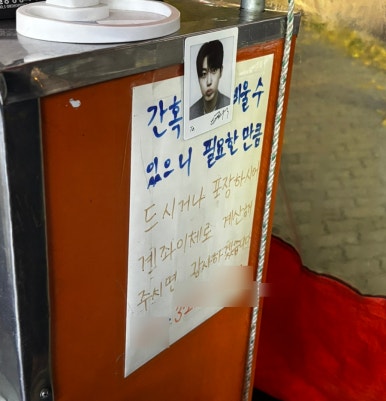 간혹 비울 수
있으니 필요한 만큼
드시거나 포장하시어
계좌이체로 계산해
주시면 감사하겠습니다